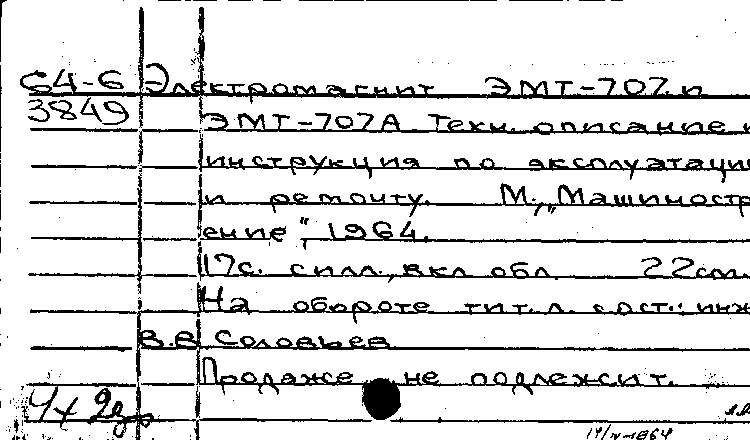 64-6 Электромагнит ЭМТ-707 и
3849 ЭМТ-707А Техн. описание и
инструкция по эксплуатации
и ремонту. М., „Машиностр
ение", 1964.
17с. с илл., вкл обл 22см.
На обороте тит. л. сост.: инж
В.В Соловьев
Продаже не подлежит.